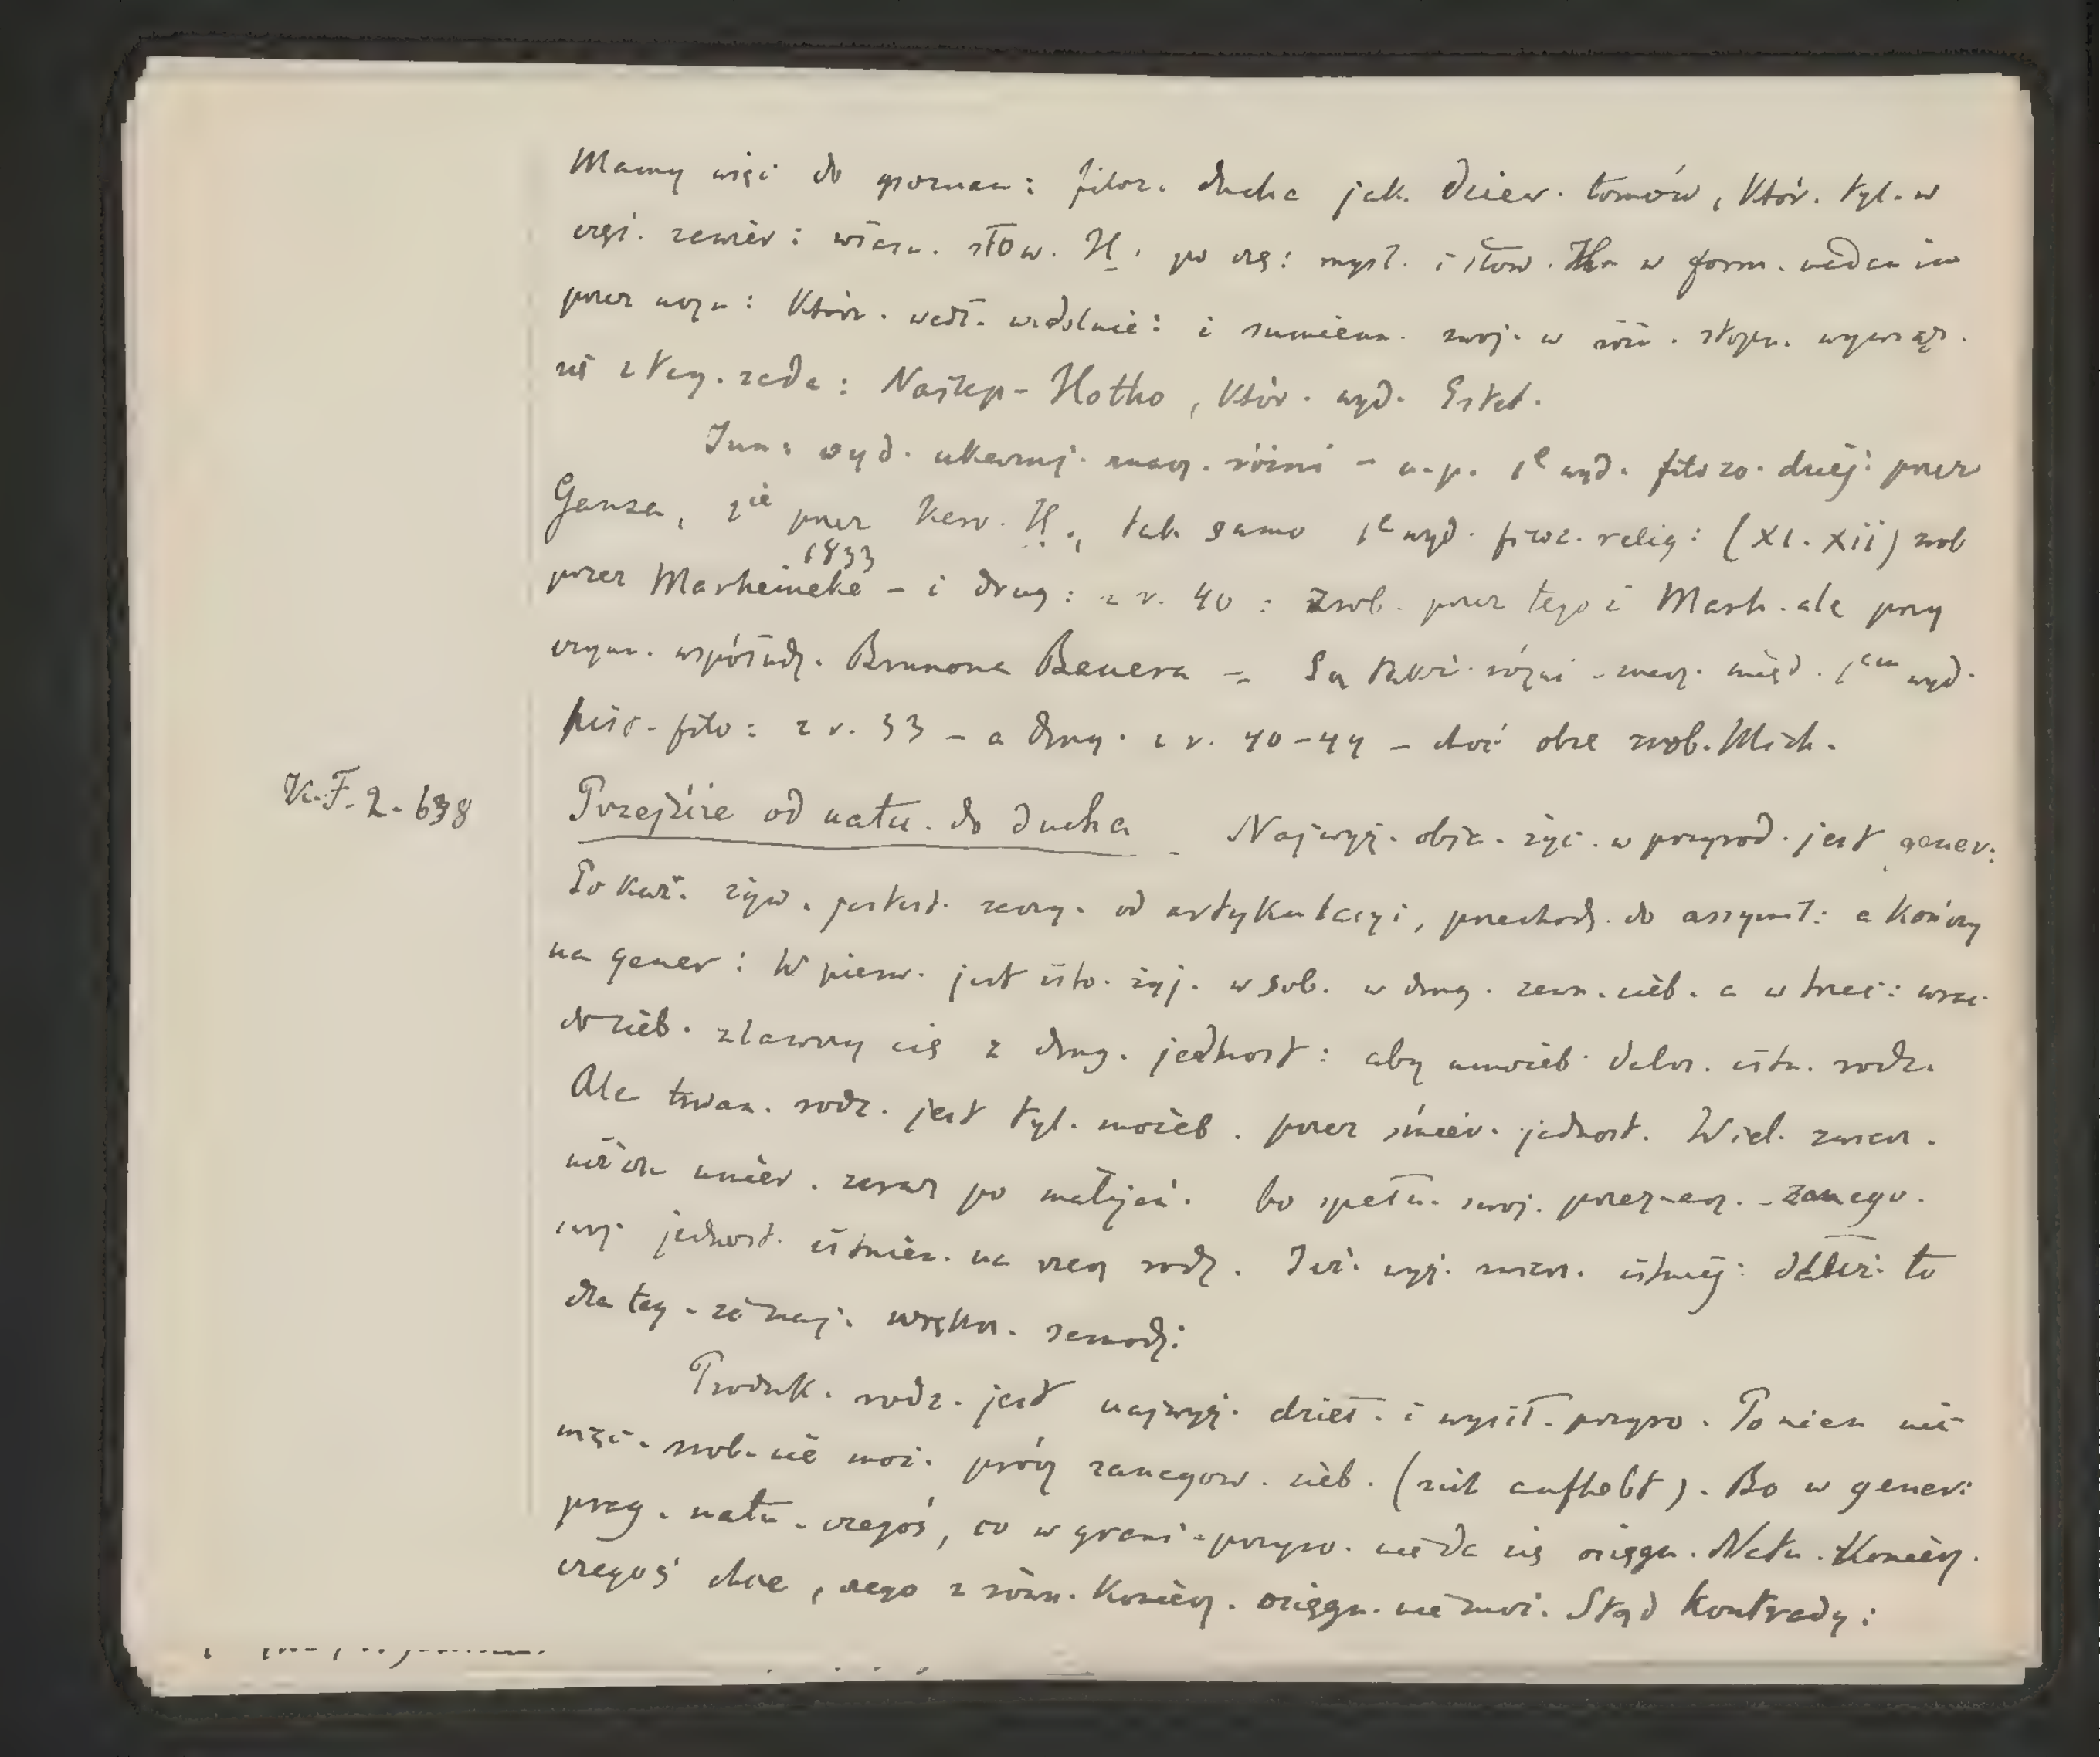 Mamy więc do poznan: filoz. ducha jak. dziew. tomów, któr. tyl. w
częś. zawier: własn. słow. H. po częś: myśl. i słow. Hla w form. nadan im
przez uczn: któr. wedł. uzdolnie: i sumienn. swoj. w różn. stopn. wywiąz.
się z teg. zada: Najlep- Hotho, któr. wyd. Estet.
Inn: wyd. ukazuj. znacz. różni - n.p. 1e wyd. filozo. dziej: przez
Gansa, 2ie przez Karo. H., tak samo 1e wyd. filoz. relig: (XI. XII) zrob
1833
przez Marheineke - i drug: z r. 40: zrob. przez tegoż Marh. ale przy
czynn. współudz. Brunona Bauera - Są także różni znacz. międ. 1em wyd.
hist. filo: z r. 33 - a drug. z r. 40-44 - choć obie zrob. Mich.
K.F. 2. 638
Przejście od natu. do ducha - Najwyż. obja. życ. w przyrod. jest gener:
Bo każ. żyw. jestest. zaczy. od artykulacyi, przechodz. do assymil: a kończy
na gener: W pierw. jest isto. żyj. w sob. w drug. zewn. sieb. a w trzec: wrac.
do sieb. zlawszy się z drug. jednost: aby umożeb. dalsz. istn. rodz.
Ale trwan. rodz. jest tyl. możeb. przez śmier. jednost. Wiel. zwierz.
niższ umier. zaraz po małżeń. bo spełn. swoj. przeznacz. - zanego.
swoj. jednost. istnien. na rzecz rodz. Jeż. wyż. zwierz. istniej: dalej: to
dla teg. że mają. większ. samodz:
Produk. rodz. jest najwyż. dzieł. i wysił. przyro. Po niem nic
więc. zrob. nie moż. prócz zanegow. sieb. (sich aufhebt). Bo w gener:
prag. natu. czegoś, co w grani. przyro. nie da się osięgn. Natu. koniecz.
czegoś chce, czego z równ. koniecz. osięgn. nie moż. Stąd kontrady: